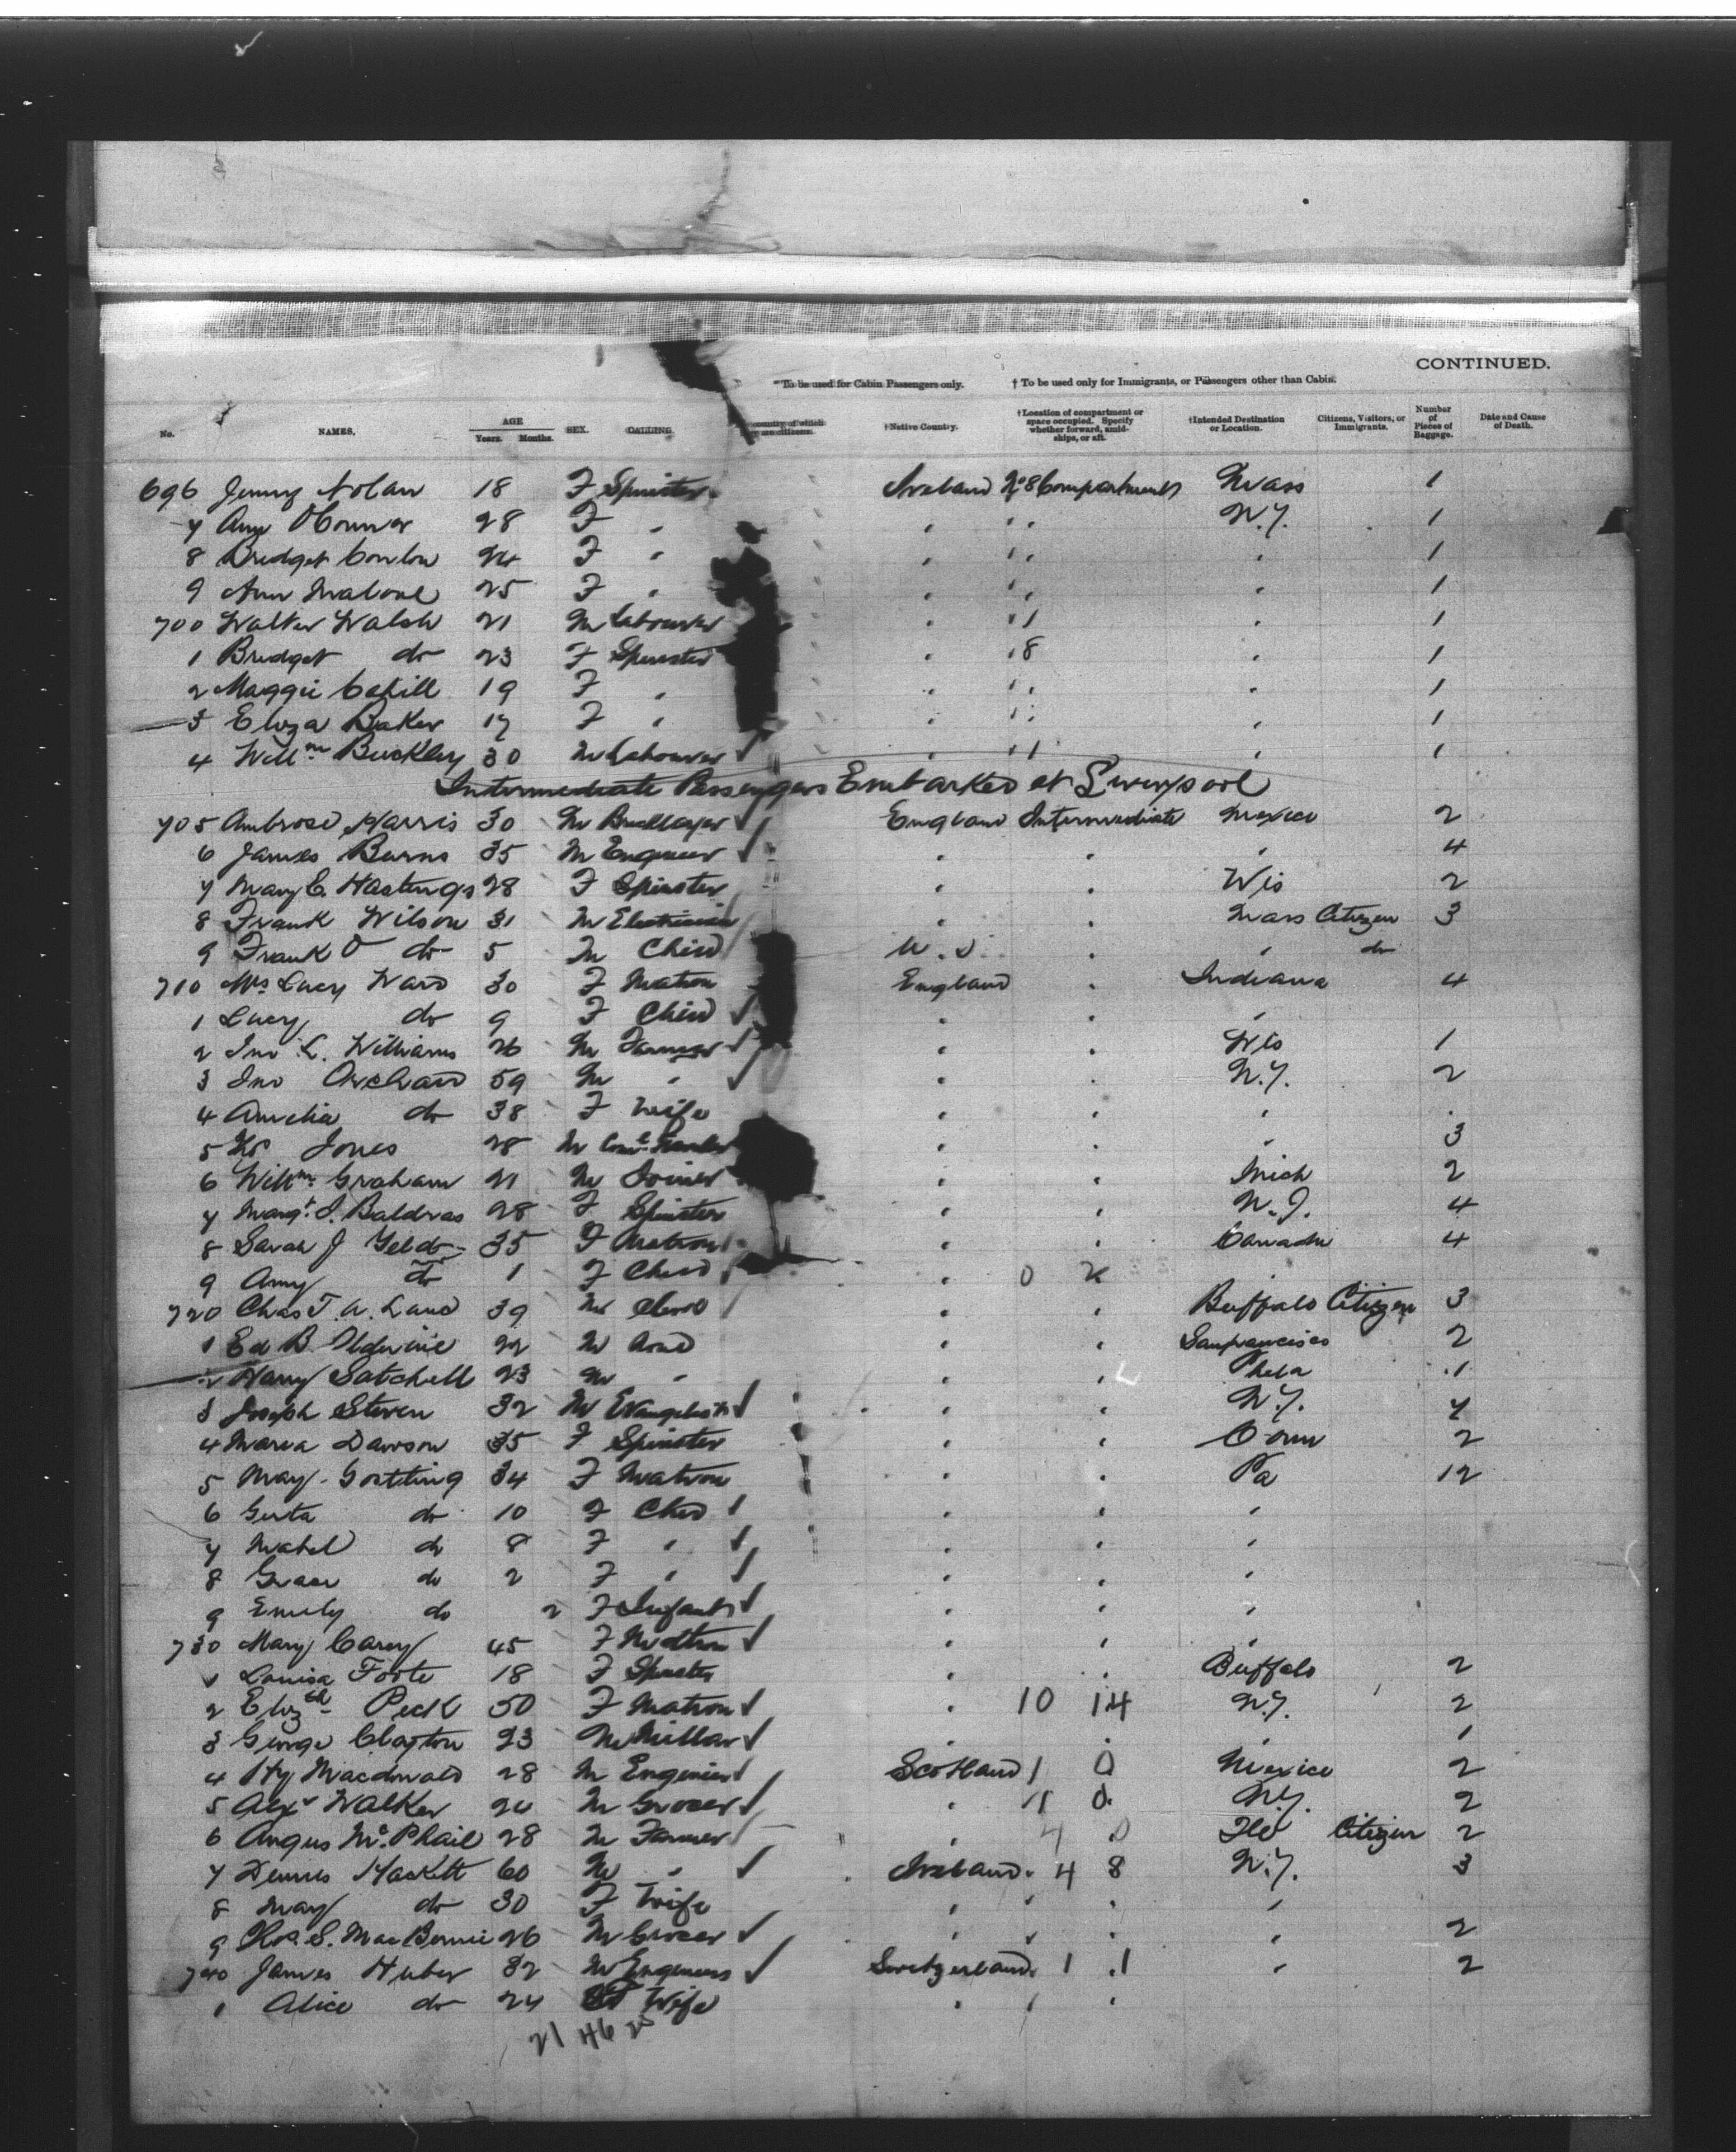 CONTINUED.
*To be used for Cabin Passengers only. † To be used only for Immigrants, or Passengers other than Cabin.
No. NAMES. AGE Years. Months. SEX. CALLING. country of which citizens. †Native Country. †Location of compartment or space occupied. Specify whether forward, amidships, or aft. †Intended Destination or Location. Citizens, Visitors, or Immigrants. Number of Pieces of Baggage. Date and Cause of Death.
696 Jenny Nolan 18 F Spinster Ireland No 8 Compartment Mass 1
7 Ann O'Connor 28 F " " " N.Y. 1
8 Bridget Conlon 24 F " " " " 1
9 Ann Malone 25 F " " " " 1
700 Walter Walsh 21 M Labourer " " 1 " 1
1 Bridget do 23 F Spinster " " 8 " 1
2 Maggie Cahill 19 F " " " " 1
3 Eliza Baker 17 F " " " " 1
4 Willm Buckley 30 M Labourer " " 1 " 1
Intermediate Passengers Embarked at Liverpool
705 Ambrose Harris 30 M Bricklayer England Intermediate Mexico 2
6 James Burns 35 M Engineer " " " 4
7 Mary C. Hastings 28 F Spinster " " Wis 2
8 Frank Wilson 31 M Electrician " " Mass Citizen 3
9 Frank O do 5 M Child U.S. " " do
710 Mrs Lucy Ward 30 F Matron England " Indiana 4
1 Lucy do 9 F Child " " "
2 Jno L. Williams 26 M Farmer " " Wis 1
3 Jno Orchard 59 M " " " N.Y. 2
4 Amelia do 38 F Wife " " " "
5 Jones 28 M " " " 3
6 Willm Graham 21 M Joiner " " Mich 2
7 Margt. J. Baldras 28 F Spinster " " N.J. 4
8 Sarah J 35 F Matron " " Canada 4
9 Amy do 1 F Child " 0 2 "
720 Chas T. A. Land 39 M Clerk " " Buffalo Citizen 3
1 Ed B. 22 M " " Sanfrancisco 2
2 Harry Satchell 23 M " " " Phila 1
3 Joseph Steven 32 M Evangelist " " N.Y. 7
4 Maria Dawson 35 F Spinster " " Conn 2
5 May Gostling 34 F Matron " " Pa 12
6 Gerta do 10 F Child " " "
7 Mabel do 8 F " " " "
8 Grace do 2 F " " " "
9 Emily do 2 F Infant " " "
730 Mary Carey 45 F Matron " " "
1 Louisa Foote 18 F Spinster " " Buffalo 2
2 Elizth Peck 50 F Matron " 10 14 N.Y. 2
3 George Clayton 23 M Millar " " " 1
4 Hy Macdonald 28 M Engineer Scotland 1 0 Mexico 2
5 Alexr Walker 24 M Grocer " 1 0 N.Y. 2
6 Angus McPhail 28 M Farmer " 4 0 Ill Citizen 2
7 Dennis Hackett 60 M " Ireland 4 8 N.Y. 3
8 May do 30 F Wife " " " "
9 Thos. S. MacBirnie 26 M Grocer " " " " 2
740 James Huber 32 M Engineer Switzerland 1 1 " 2
1 Alice do 24 F Wife " " "
21 46 25